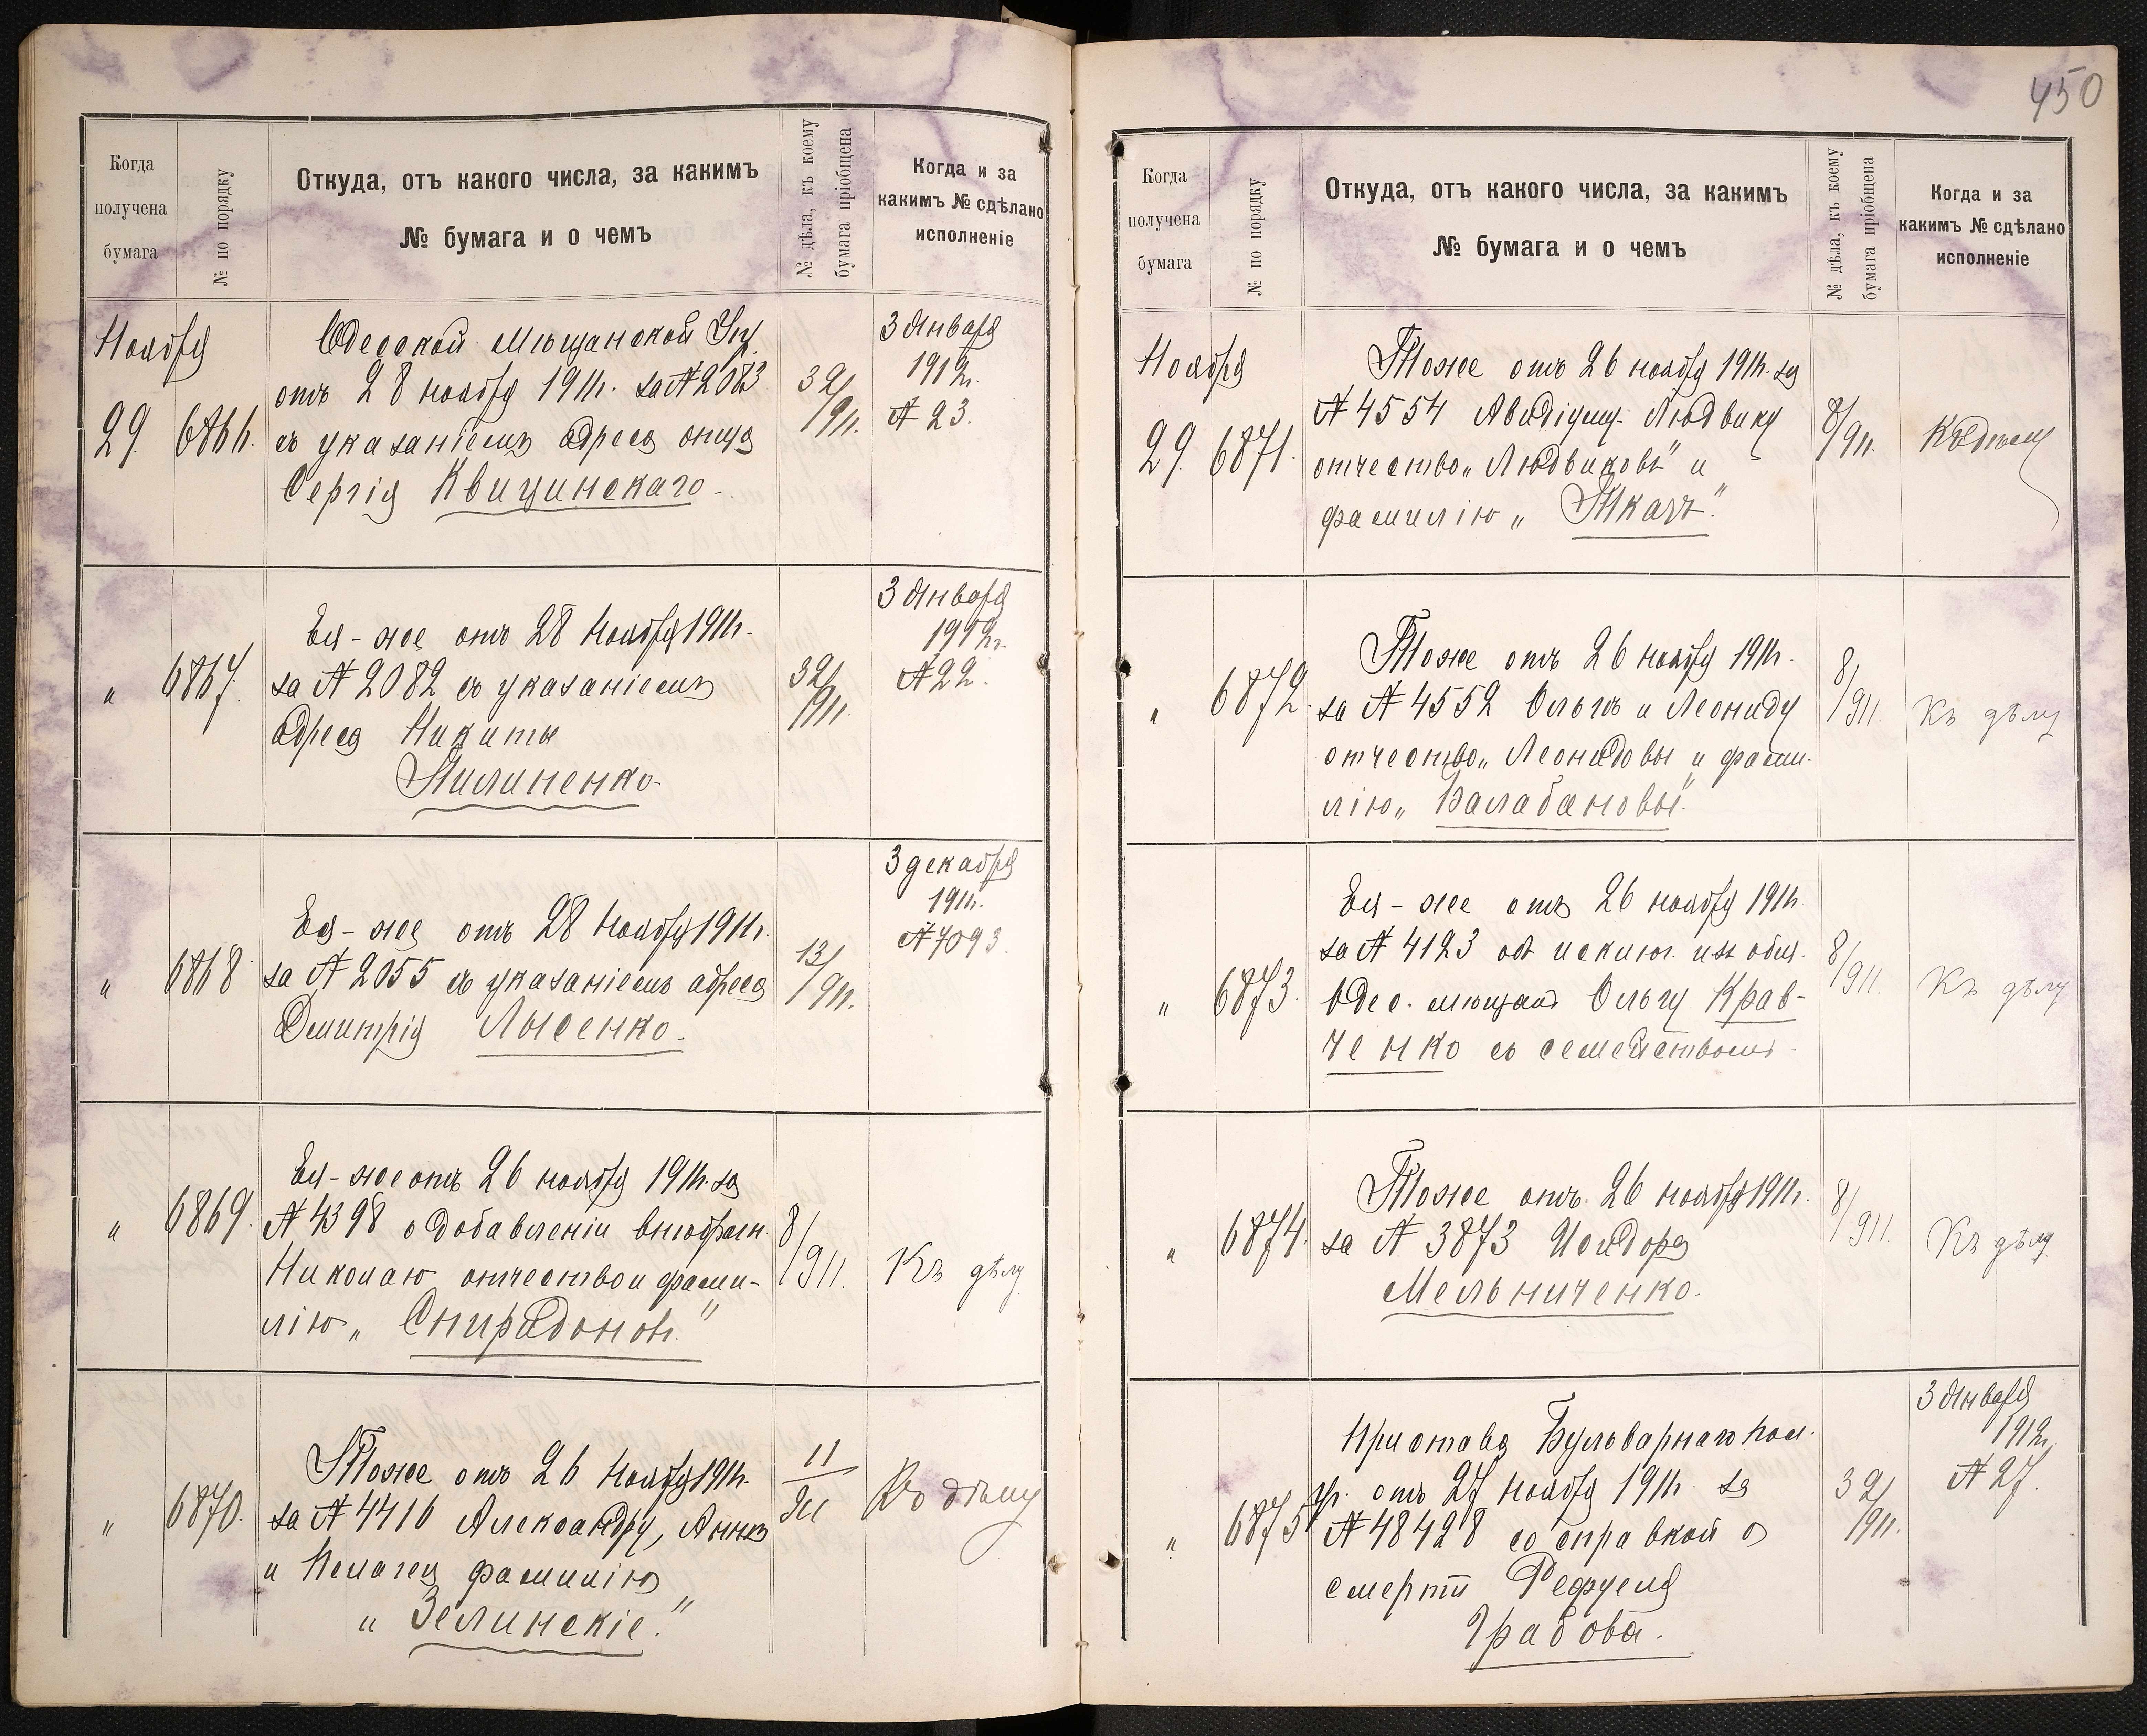 450
Когда
получена
бумага
№ по порядку
Откуда, отъ какого числа, за какимъ
№ бумага и о чемъ
№ дѣла, къ коему
бумага пріобщена
Когда и за
какимъ № сдѣлано
исполненіе
Ноября
29. 6866.
Одесской Мѣщанской Уп.
отъ 28 ноября 1911г. за № 2083
съ указаніемъ адреса отца
Сергія Квицинскаго.
32/911.
3 Января
1912г.
№ 23.
" 6867.
Ея-же отъ 28 Ноября 1911г.
за № 2082 съ указаніемъ
адреса Никиты
Пилипенко.
32/911.
3 Января
1912г.
№ 22.
" 6868
Ея-же отъ 28 Ноября 1911г.
за № 2055 съ указаніемъ адреса
Дмитрія Лысенко.
13/911.
3 декабря
1911г.
№ 7093.
" 6869.
Ея-же отъ 26 ноября 1911г. за
№ 4398 о добавленіи внѣбрачн.
Николаю отчество и фами-
лію „Спиридоновъ."
8/911.
Къ дѣлу
" 6870.
Тоже отъ 26 Ноября 1911г.
за № 4416 Александру, Аннѣ
и Пелагеи фамилію
„Зелинскіе."
11/911
Къ дѣлу
Когда
получена
бумага
№ по порядку
Откуда, отъ какого числа, за какимъ
№ бумага и о чемъ
№ дѣла, къ коему
бумага пріобщена
Когда и за
какимъ № сдѣлано
исполненіе
Ноября
29. 6871.
Тоже отъ 26 ноября 1911г. за
№ 4554 Людвику
отчество „Людвиковъ" и
фамилію „Ткачъ."
8/911.
Къ дѣлу
" 6872.
Тоже отъ 26 ноября 1911г.
за № 4552 Ольгѣ и Леониду
отчество „Леонидовы и фами-
лію „Балабановы."
8/911.
Къ дѣлу
" 6873.
Ея-же отъ 26 ноября 1911г.
за № 4123 объ исключ. изъ общ.
Одес. мѣщанъ Ольгу Крав-
ченко съ семействомъ.
8/911.
Къ дѣлу
" 6874.
Тоже отъ 26 ноября 1911г.
за № 3873 Исидора
Мельниченко.
8/911.
Къ дѣлу
" 6875
Пристава Бульварнаго пол.
уч. отъ 27 ноября 1911г. за
№ 48428 со справкой о
смерти Рефуела
Грабова.
32/911.
3 Января
1912г.
№ 27.